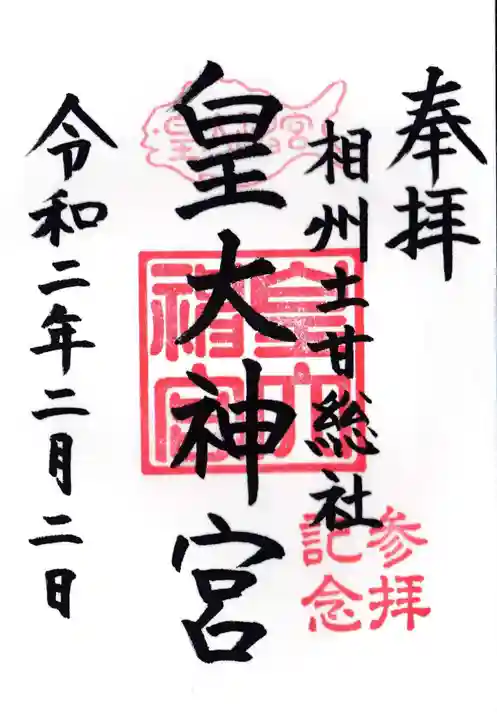 奉拝
相州土甘総社
皇大神宮
令和二年二月二日
皇大神宮
参拝
記念